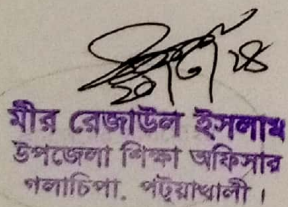 মীর রেজাউল ইসলাম
উপজেলা শিক্ষা অফিসার
গলাচিপা, পটুয়াখালী।